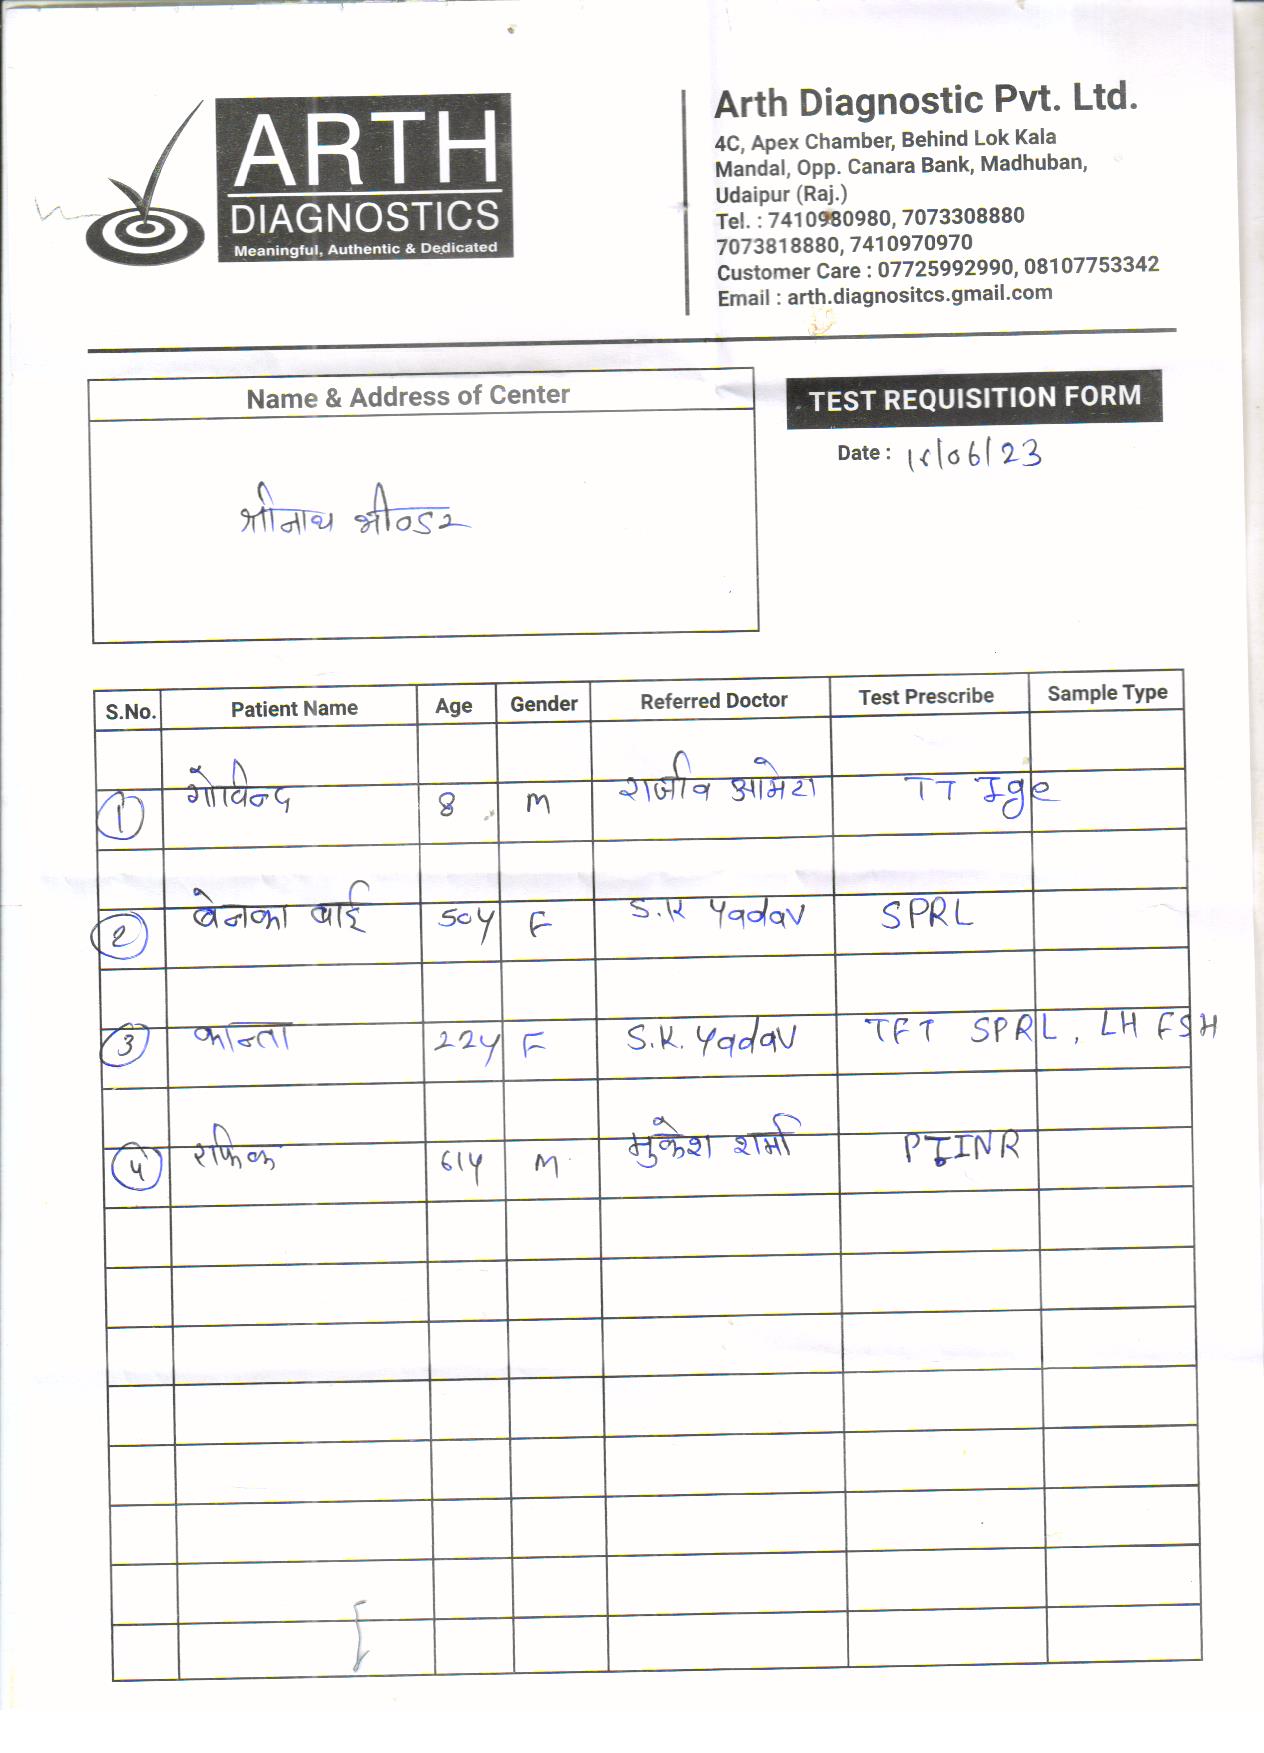 ARTH
DIAGNOSTICS
Meaningful, Authentic & Dedicated
Arth Diagnostic Pvt. Ltd.
4C, Apex Chamber, Behind Lok Kala
Mandal, Opp. Canara Bank, Madhuban,
Udaipur (Raj.)
Tel. : 7410980980, 7073308880
7073818880, 7410970970
Customer Care : 07725992990, 08107753342
Email : arth.diagnositcs.gmail.com
Name & Address of Center
श्रीनाथ भीण्डर
TEST REQUISITION FORM
Date : /06/23
S.No. Patient Name Age Gender Referred Doctor Test Prescribe Sample Type
1 गोविन्द 8 M राजीव आमेटा TT Ige
2 बेनका बाई 50y F S.K Yadav SPRL
3 कान्ता 22y F S.K. Yadav TFT SPRL, LH FSH
4 रफिक 61y M मुकेश शर्मा PTINR